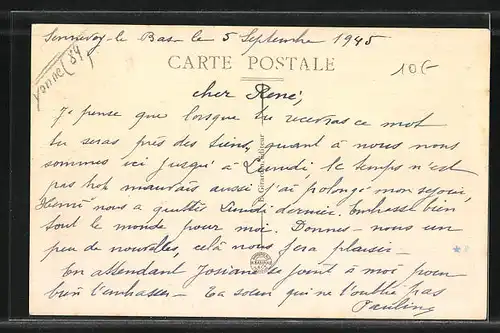 Sennevoy-le Bas- le 5 Septembre 1945
CARTE POSTALE
10F
cher René,
Je pense que lorsque tu recevras ce mot
tu seras près des tiens, quant à nous nous
sommes ici jusqu'à Lundi, le temps n'est
pas trop mauvais aussi j'ai prolongé mon séjour,
Henri nous a quittés Lundi dernier. Embrasse bien
tout le monde pour moi. Donnes-nous un
peu de nouvelles, celà nous fera plaisir-
En attendant Josiane se joint à moi pour
bien t'embrasser- Ta soeur qui ne t'oublie pas
Pauline